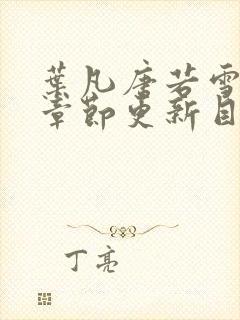 葉凡唐若雪
章節更新目
丁亮